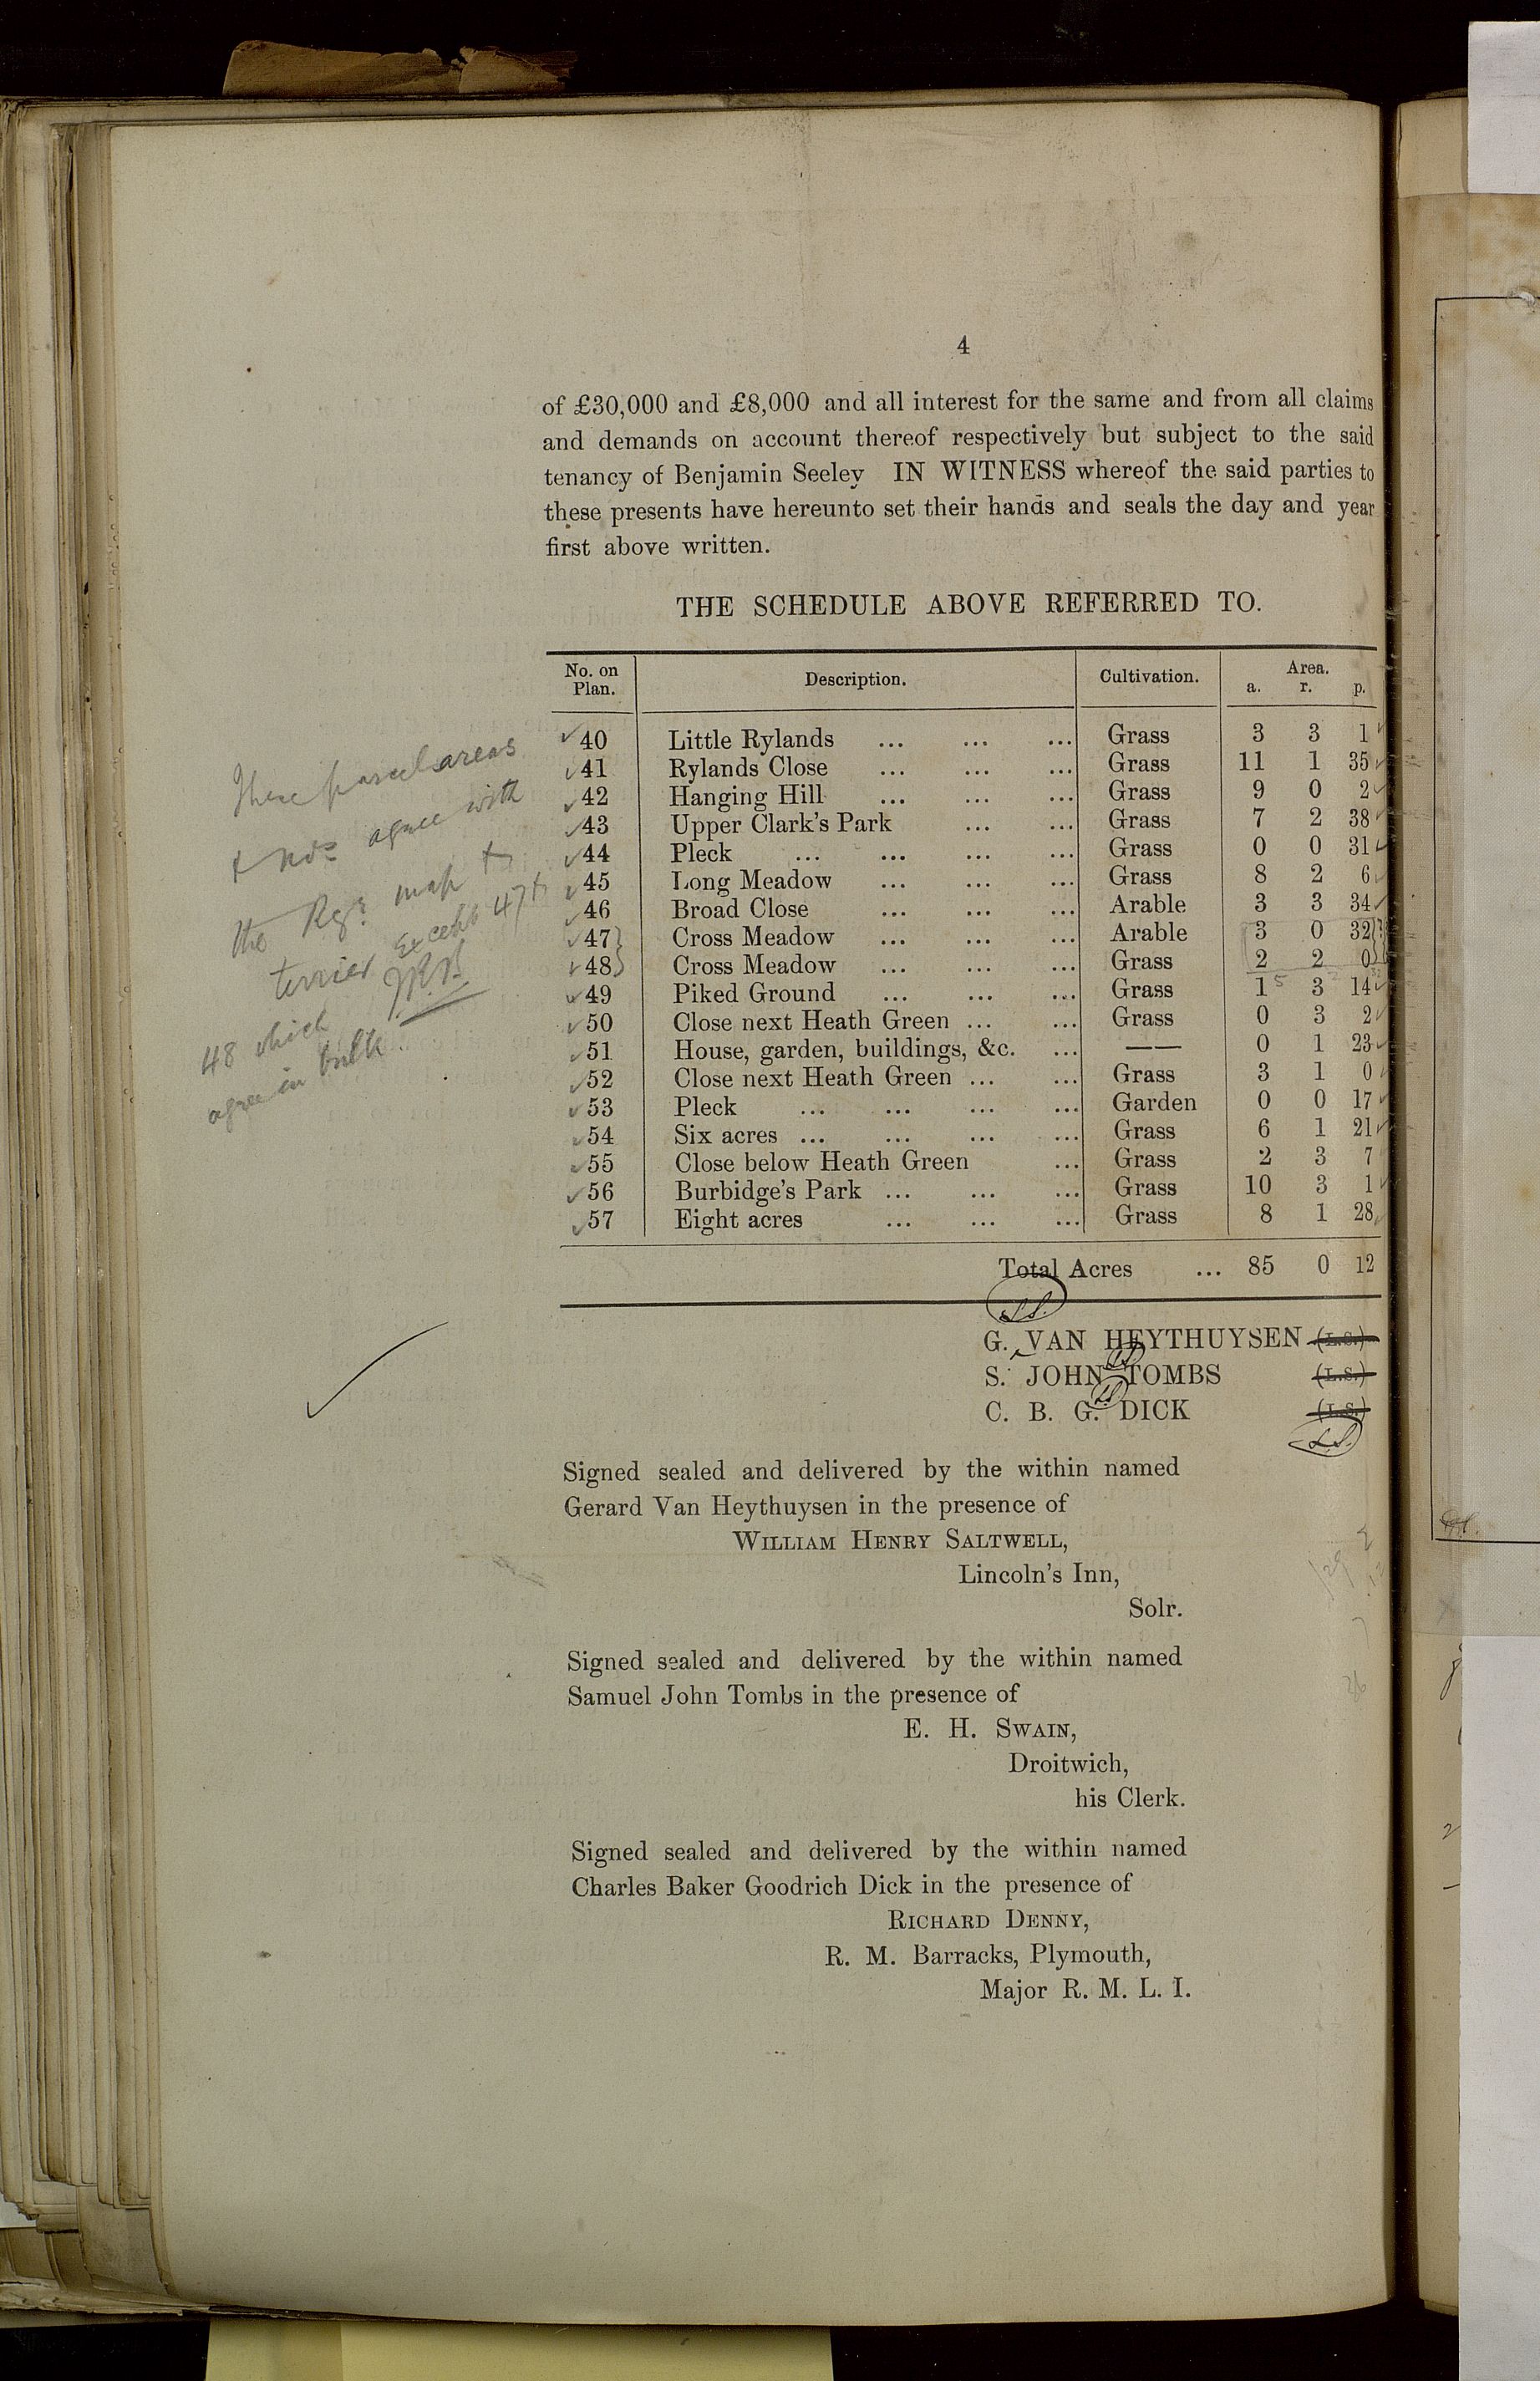 4
of £30,000 and £8,000 and all interest for the same and from all claims
and demands on account thereof respectively but subject to the said
tenancy of Benjamin Seeley IN WITNESS whereof the said parties to
these presents have hereunto set their hands and seals the day and year
first above written.
THE SCHEDULE ABOVE REFERRED TO.
No. on Plan. Description. Cultivation. Area. a. r. p.
40 Little Rylands ... ... ... Grass 3 3 1
41 Rylands Close ... ... ... Grass 11 1 35
42 Hanging Hill ... ... ... Grass 9 0 2
43 Upper Clark's Park ... ... Grass 7 2 38
44 Pleck ... ... ... ... Grass 0 0 31
45 Long Meadow ... ... ... Grass 8 2 6
46 Broad Close ... ... ... Arable 3 3 34
47 Cross Meadow ... ... ... Arable 3 0 32
48 Cross Meadow ... ... ... Grass 2 2 0
49 Piked Ground ... ... ... Grass 1 3 14
50 Close next Heath Green ... ... Grass 0 3 2
51 House, garden, buildings, &c. ... —— 0 1 23
52 Close next Heath Green ... ... Grass 3 1 0
53 Pleck ... ... ... ... Garden 0 0 17
54 Six acres ... ... ... ... Grass 6 1 21
55 Close below Heath Green ... Grass 2 3 7
56 Burbidge's Park ... ... ... Grass 10 3 1
57 Eight acres ... ... ... Grass 8 1 28
Total Acres ... 85 0 12
These parcel areas
& Nos agree with
the Regr. map &
terrier except 47 &
48 which
agree in bulk.
L.S.
G. VAN HEYTHUYSEN (L.S.)
L.S.
S. JOHN TOMBS (L.S.)
L.S.
C. B. G. DICK (L.S.)
L.S.
Signed sealed and delivered by the within named
Gerard Van Heythuysen in the presence of
WILLIAM HENRY SALTWELL,
Lincoln's Inn,
Solr.
Signed sealed and delivered by the within named
Samuel John Tombs in the presence of
E. H. SWAIN,
Droitwich,
his Clerk.
Signed sealed and delivered by the within named
Charles Baker Goodrich Dick in the presence of
RICHARD DENNY,
R. M. Barracks, Plymouth,
Major R. M. L. I.